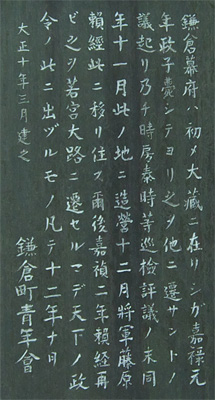 鎌倉幕府ハ初メ大藏ニ在リシガ嘉禄元
年政子薨シテヨリ之ヲ他ニ遷サントノ
議起リ乃チ時房泰時等巡檢評議ノ末同
年十一月此ノ地ニ造營十二月將軍藤原
賴經此ニ移リ住ス爾後嘉禎二年賴經再
ビ之ヲ若宮大路ニ遷セルマデ天下ノ政
令ノ此ニ出ヅルモノ凡テ十二年ナリ
大正十年三月建之
鎌倉町青年會